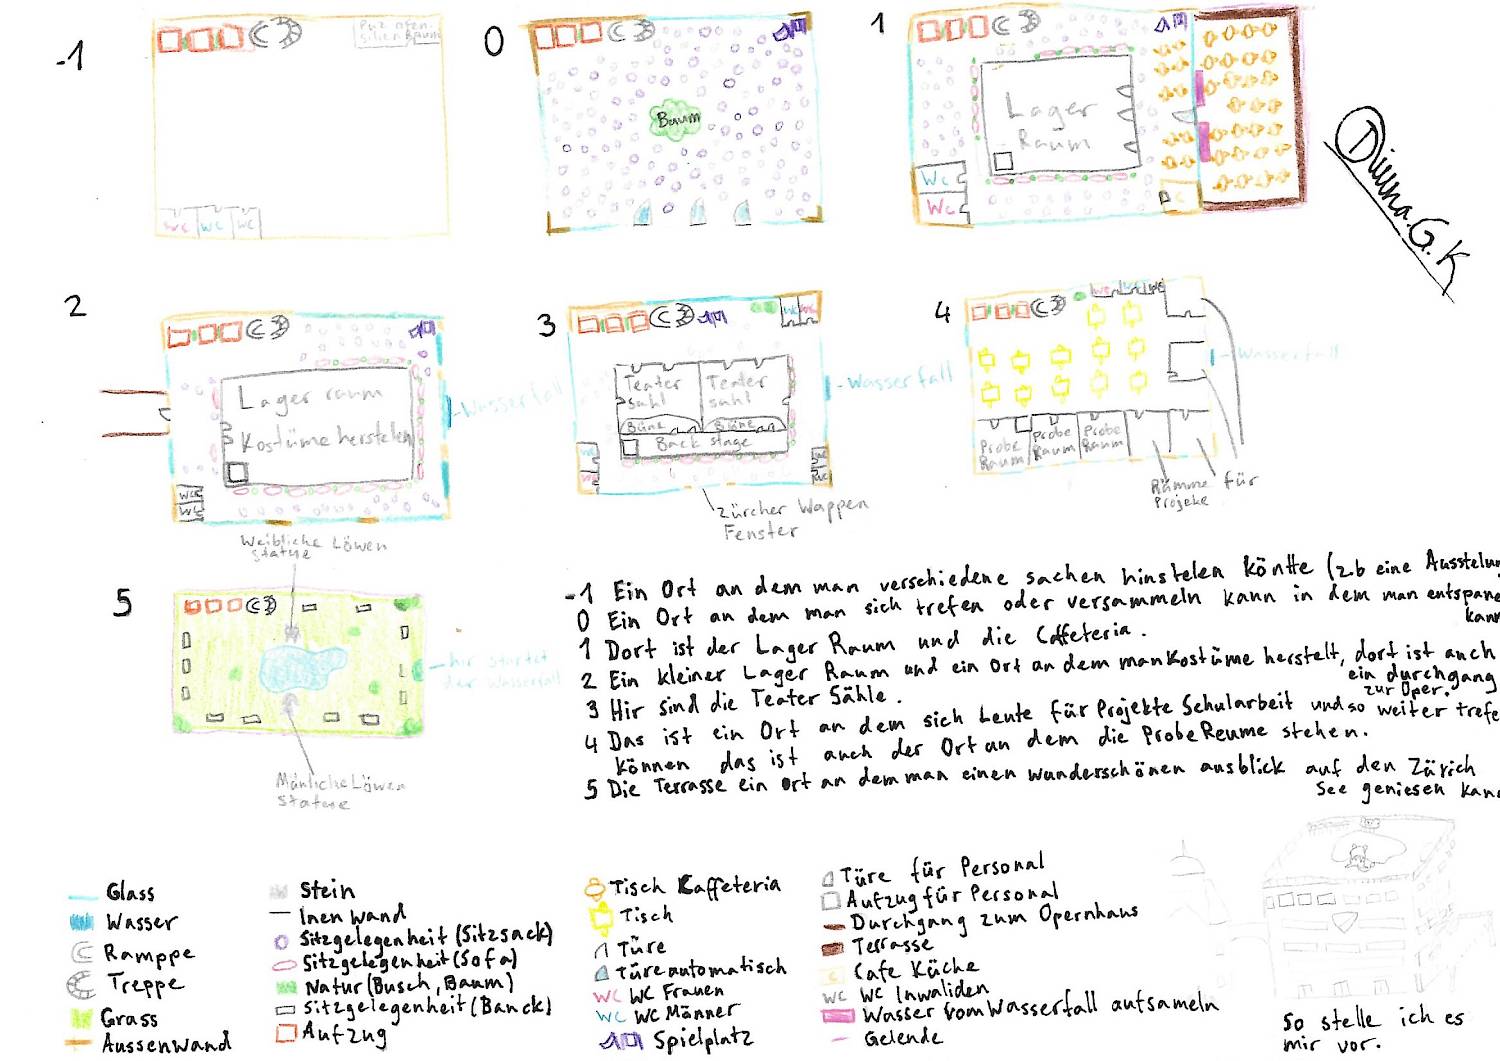 -1
Raum
WC WC WC
0
Baum
1
Lager
Raum
WC
WC
C
2
Lager raum
Kostüme herstelen
Wasserfall
WC
WC
3
WC WC
Teater
sahl
Teater
sahl
Büne
Büne
Back stage
WC
WC
WC
WC
Wasserfall
Zürcher Wappen
Fenster
4
WC WC WC
Wasserfall
Probe
Raum
Probe
Raum
Probe
Raum
Rämme für
Projeke
Weibliche Löwen
statue
5
hir startet
der Wasserfall
Mänliche Löwen
statue
-1 Ein Ort an dem man verschiedene sachen hinstelen köntte (z.b eine Ausstelun
0 Ein Ort an dem man sich trefen oder versammeln kann in dem man entspane
kann
1 Dort ist der Lager Raum und die Caffeteria.
2 Ein kleiner Lager Raum und ein Ort an dem man Kostüme herstelt, dort ist auch
ein durchgang
zur Oper.
3 Hir sind die Teater Sähle.
4 Das ist ein Ort an dem sich Leute für Projekte Schularbeit und so weiter trefe
können das ist auch der Ort an dem die Probe Reume stehen.
5 Die Terrasse ein ort an dem man einen wunderschönen ausblick auf den Zürich
See geniesen kann
Glass
Wasser
Ramppe
Treppe
Grass
Aussenwand
Stein
Inen wand
Sitzgelegenheit (Sitzsack)
Sitzgelegenheit (Sofa)
Natur (Busch, Baum)
Sitzgelegenheit (Banck)
Aufzug
Tisch Kaffeteria
Tisch
Türe
Türe automatisch
WC WC Frauen
WC WC Männer
Spielplatz
Türe für Personal
Aufzug für Personal
Durchgang zum Opernhaus
Terrasse
C Cafe Küche
WC WC Inwaliden
Wasser vom Wasserfall aufsameln
Gelende
So stelle ich es
mir vor.